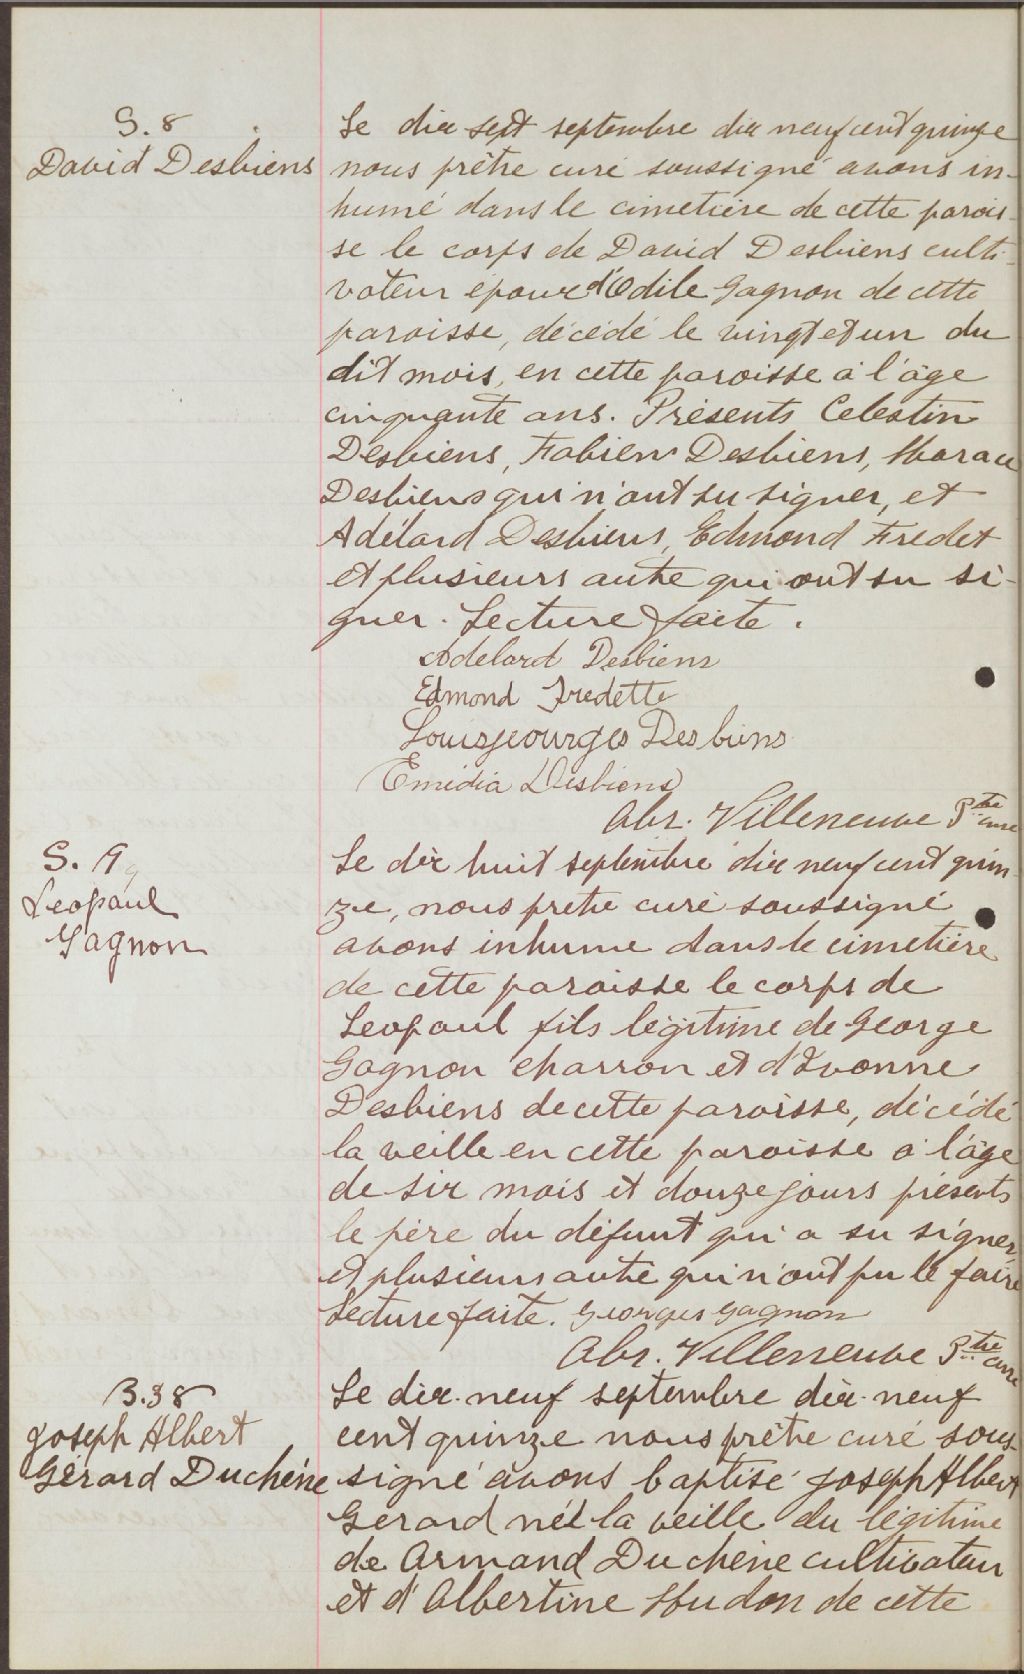 S. 8
David Desbiens
Le dix sept septembre dix neuf cent quinze
nous prêtre curé soussigné avons in-
humé dans le cimetière de cette parois-
se le corps de David Desbiens culti-
vateur époux d'Odile Gagnon de cette
paroisse, décédé le vingt et un du
dit mois, en cette paroisse à l'âge
cinquante ans. Présents Celestin
Desbiens, Fabien Desbiens,
Desbiens qui n'ont su signer, et
Adélard Desbiens, Edmond Fredet
et plusieurs autre qui ont su si-
gner. Lecture faite.
Adelard Desbiens
Edmond Fredette
Louis georges Desbiens
Emidia Desbiens
Abr. Villeneuve Ptre curé
S. 9
Leopaul
Gagnon
Le dix huit septembre dix neuf cent quin-
ze, nous prêtre curé soussigné
avons inhumé dans le cimetière
de cette paroisse le corps de
Leopaul fils légitime de George
Gagnon charron et d'Ivonne
Desbiens de cette paroisse, décédé
la veille en cette paroisse à l'âge
de six mois et douze jours présents
le père du défunt qui a su signer,
et plusieurs autre qui n'ont pu le faire
Lecture faite. Georges Gagnon
Abr. Villeneuve Ptre curé
B. 38
Joseph Albert
Gérard Duchéne
Le dix-neuf septembre dix-neuf
cent quinze nous prêtre curé sous-
signé avons baptisé Joseph Albert
Gerard né la veille du légitime
de Armand Duchéne cultivateur
et d'Albertine Hudon de cette